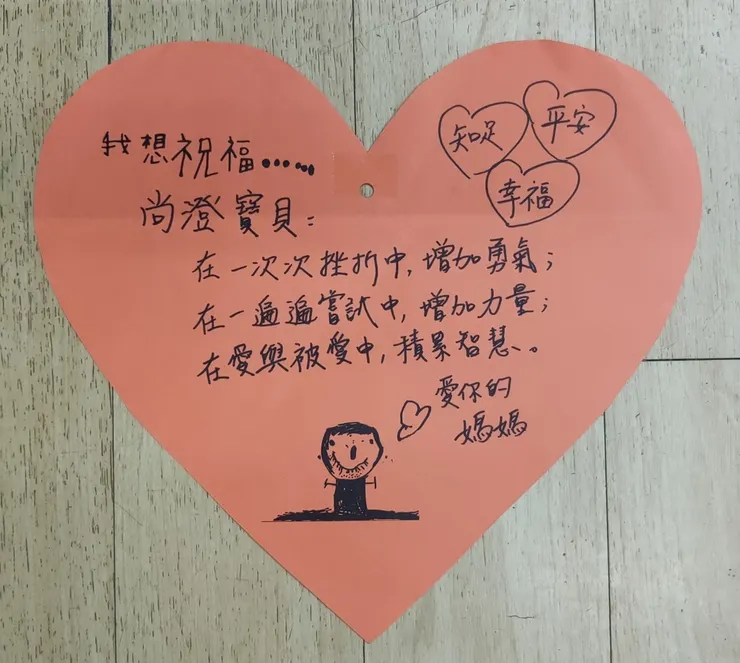 我想祝福......
尚澄寶貝：
在一次次挫折中，增加勇氣；
在一遍遍嘗試中，增加力量；
在愛與被愛中，積累智慧。
愛你的
媽媽
知足
平安
幸福